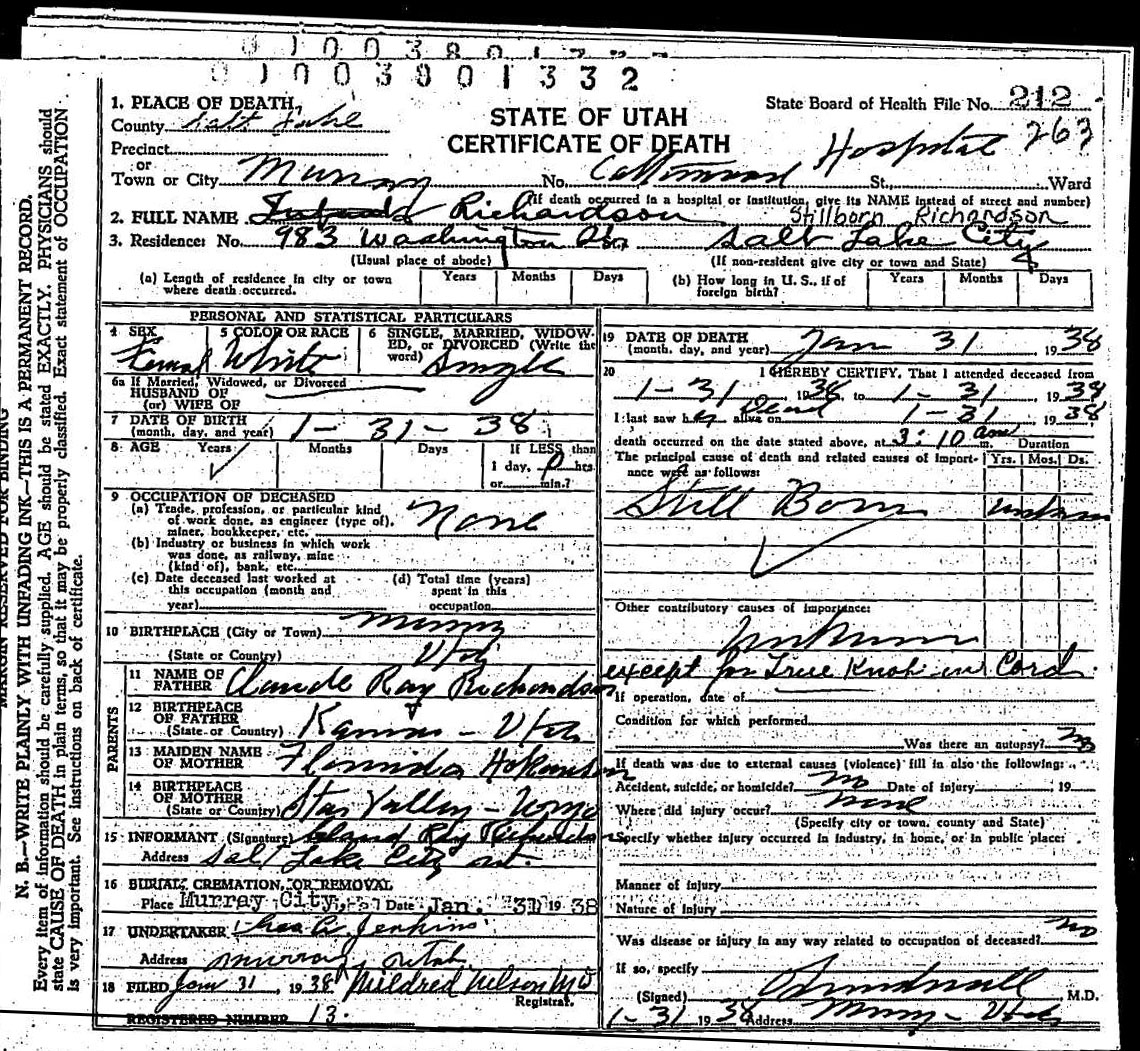 0 1 0 0 3 8 0 1
0 1 0 0 3 8 0 1 3 3 2
1. PLACE OF DEATH, STATE OF UTAH State Board of Health File No. 212
County Salt Lake CERTIFICATE OF DEATH 263
Precinct
or
Town or City Murray No. Cottonwood Hospital St., Ward
(If death occurred in a hospital or institution, give its NAME instead of street and number)
2. FULL NAME Richardson Stillborn Richardson
3. Residence: No. 983 Washington Salt Lake City
(Usual place of abode) (If non-resident give city or town and State)
(a) Length of residence in city or town where death occurred. Years Months Days (b) How long in U. S., if of foreign birth? Years Months Days
PERSONAL AND STATISTICAL PARTICULARS
4 SEX Female 5 COLOR OR RACE White 6 SINGLE, MARRIED, WIDOWED, or DIVORCED (Write the word) Single
6a If Married, Widowed, or Divorced
HUSBAND OF
(or) WIFE OF
7 DATE OF BIRTH
(month, day, and year) 1-31-38
8 AGE Years Months Days If LESS than
1 day, 0 hrs
or min.?
9 OCCUPATION OF DECEASED
(a) Trade, profession, or particular kind
of work done, as engineer (type of),
miner, bookkeeper, etc. None
(b) Industry or business in which work
was done, as railway, mine
(kind of), bank, etc.
(c) Date deceased last worked at
this occupation (month and
year)
(d) Total time (years)
spent in this
occupation
10 BIRTHPLACE (City or Town) Murray
(State or Country) Utah
PARENTS
11 NAME OF
FATHER Claude Ray Richardson
12 BIRTHPLACE
OF FATHER
(State or Country) Kamas - Utah
13 MAIDEN NAME
OF MOTHER Florinda Hokanson
14 BIRTHPLACE
OF MOTHER
(State or Country) Star Valley - Wyo
15 INFORMANT (Signature) Claud Ray Richardson
Address Salt Lake City ut.
16 BURIAL, CREMATION, OR REMOVAL
Place Murray City, Date Jan. 31 1938
17 UNDERTAKER Jenkins
Address Murray, Utah
18 FILED Jan 31 1938 Mildred Nelson MD
Registrar.
REGISTERED NUMBER 13.
19 DATE OF DEATH
(month, day, and year) Jan 31 1938
20 I HEREBY CERTIFY, That I attended deceased from
1-31 1938, to 1-31 1938
I last saw her alive on Dead 1-31 1938
death occurred on the date stated above, at 3:10 am m. Duration
The principal cause of death and related causes of importance were as follows: Yrs. Mos. Ds.
Still Born unknown
Other contributory causes of importance:
Unknown
except for True Knot in Cord
If operation, date of
Condition for which performed
Was there an autopsy? no
If death was due to external causes (violence) fill in also the following:
Accident, suicide, or homicide? no Date of injury 19
Where did injury occur? none
(Specify city or town, county and State)
Specify whether injury occurred in industry, in home, or in public place:
Manner of injury
Nature of injury
Was disease or injury in any way related to occupation of deceased? no
If so, specify
(Signed) Sundwall M.D.
1-31 1938 Address Murray - Utah
MARGIN RESERVED FOR BINDING
N. B.—WRITE PLAINLY WITH UNFADING INK—THIS IS A PERMANENT RECORD.
Every item of information should be carefully supplied. AGE should be stated EXACTLY. PHYSICIANS should
state CAUSE OF DEATH in plain terms, so that it may be properly classified. Exact statement of OCCUPATION
is very important. See instructions on back of certificate.